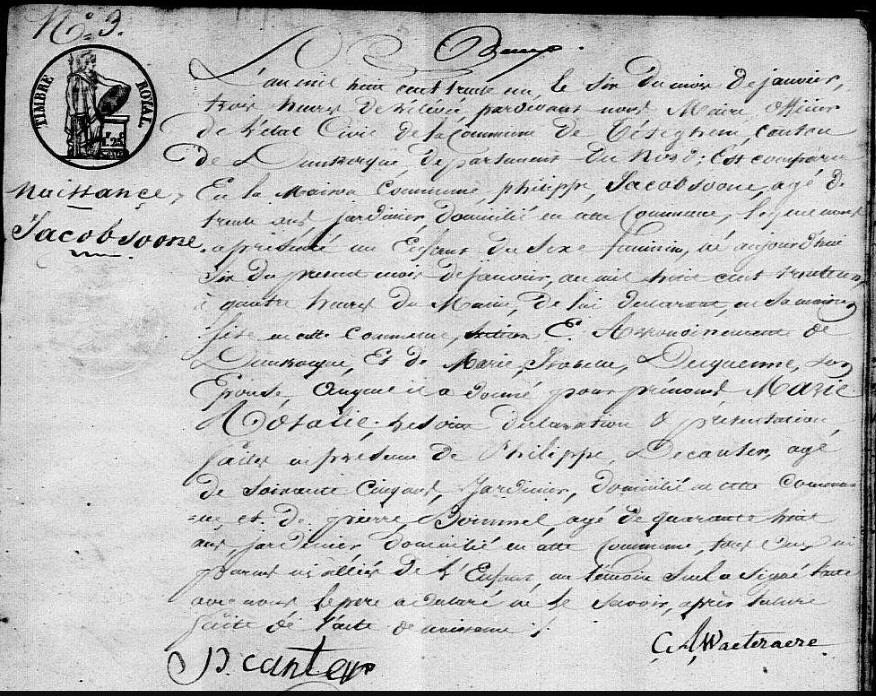 N° 3.
TIMBRE ROYAL
L'an mil huit cent trente un, le six du mois de janvier,
trois heures de relévée, pardevant nous Maire, officier
de l'état Civil de la Commune de Téteghem, canton
de Dunkerque, département du Nord; Est comparu
Naissance,
En la Maison Commune, philippe, Jacobsoone, agé de
trente ans, jardinier, domicilié en cette Commune, lequel nous
Jacobsoone.
a présenté un Enfant du Sexe féminin, né aujourd'hui
six du présent mois de janvier, an mil huit cent trente un
à quatre heures du Matin, de lui déclarant, en sa maison
sise en cette Commune, Arrondissement de
Dunkerque, Et de Marie, Duquenne, son
Epouse, auquel il a donné pour prénoms Marie
Natalie; déclaration & présentation
faites en présence de Philippe, Decanter, agé
de soixante Cinq ans, Jardinier, domicilié en cette Commu-
=ne, et de pierre, Bommel, agé de quarante huit
ans, jardinier domicilié en cette Commune, tous deux ni
parens ni alliés de l'Enfant, un témoin seul a signé
avec nous le pere a déclaré ne le savoir, après lecture
faite de l'acte de naissance ./.
C. A. Waeteraere.
D. canter